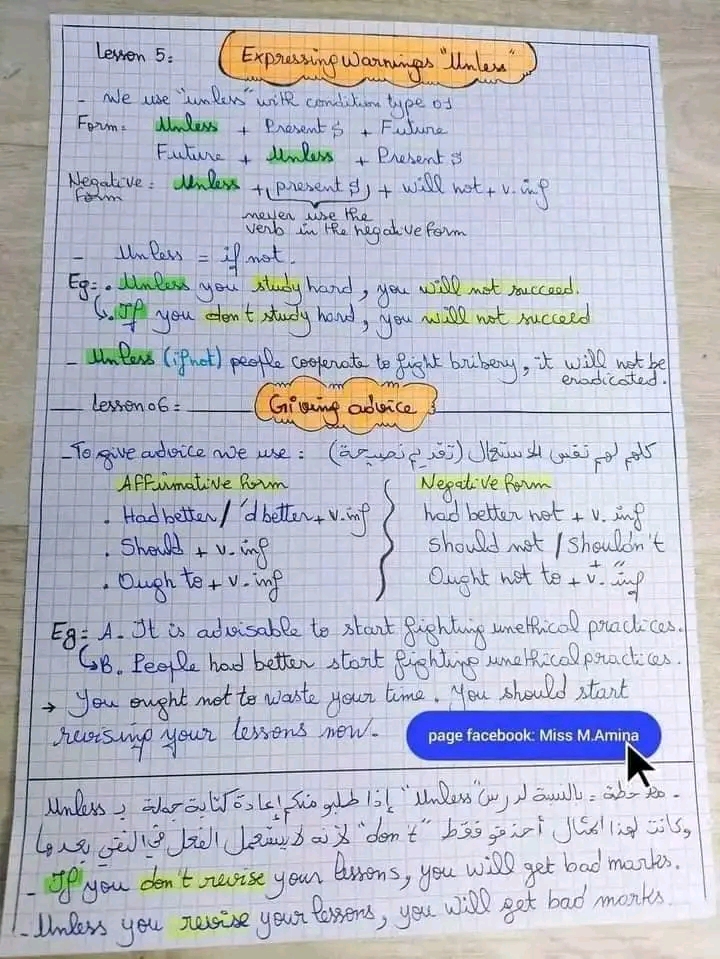 Lesson 5:
Expressing Warnings "Unless"
- We use "unless" with condition type 01
Form: Unless + Present S + Future
Future + Unless + Present S
Negative form: Unless + (present S) + will not + v. inf
never use the
verb in the negative form
- Unless = if not.
Eg: . Unless you study hard, you will not succeed.
↳. If you don't study hard, you will not succeed
- Unless (if not) people cooperate to fight bribery, it will not be
eradicated.
Lesson 06:
Giving advice
- To give advice we use : كلهم لهم نفس الاستعمال (تقديم نصيحة)
Affirmative form
Negative form
. Had better / 'd better + v. inf
had better not + v. inf
. Should + v. inf
Should not / Shouldn't + " "
. Ough to + v. inf
Ought not to + v. inf
Eg: A. It is advisable to start fighting unethical practices.
↳B. People had better start fighting unethical practices.
→ You ought not to waste your time. You should start
revising your lessons now.
page facebook: Miss M.Amina
- ملاحظة = بالنسبة لدرس "Unless" إذا طلبو منكم إعادة كتابة جملة بـ Unless
وكانت لهذا المثال أحذفو فقط "don't" لأنه لا يستعمل الفعل في النفي بعدها
- If you don't revise your lessons, you will get bad marks.
- Unless you revise your lessons, you will get bad marks.